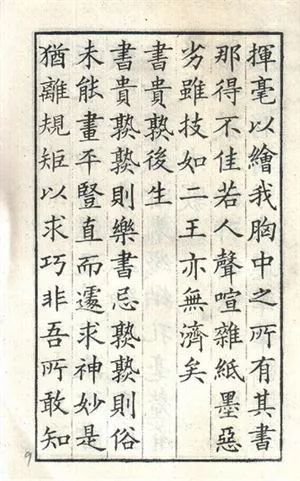 揮毫以繪我胸中之所有其書
那得不佳若人聲喧雜紙墨惡
劣雖技如二王亦無濟矣
書貴熟後生
書貴熟熟則樂書忌熟熟則俗
未能畫平豎直而遽求神妙是
猶離規矩以求巧非吾所敢知
9